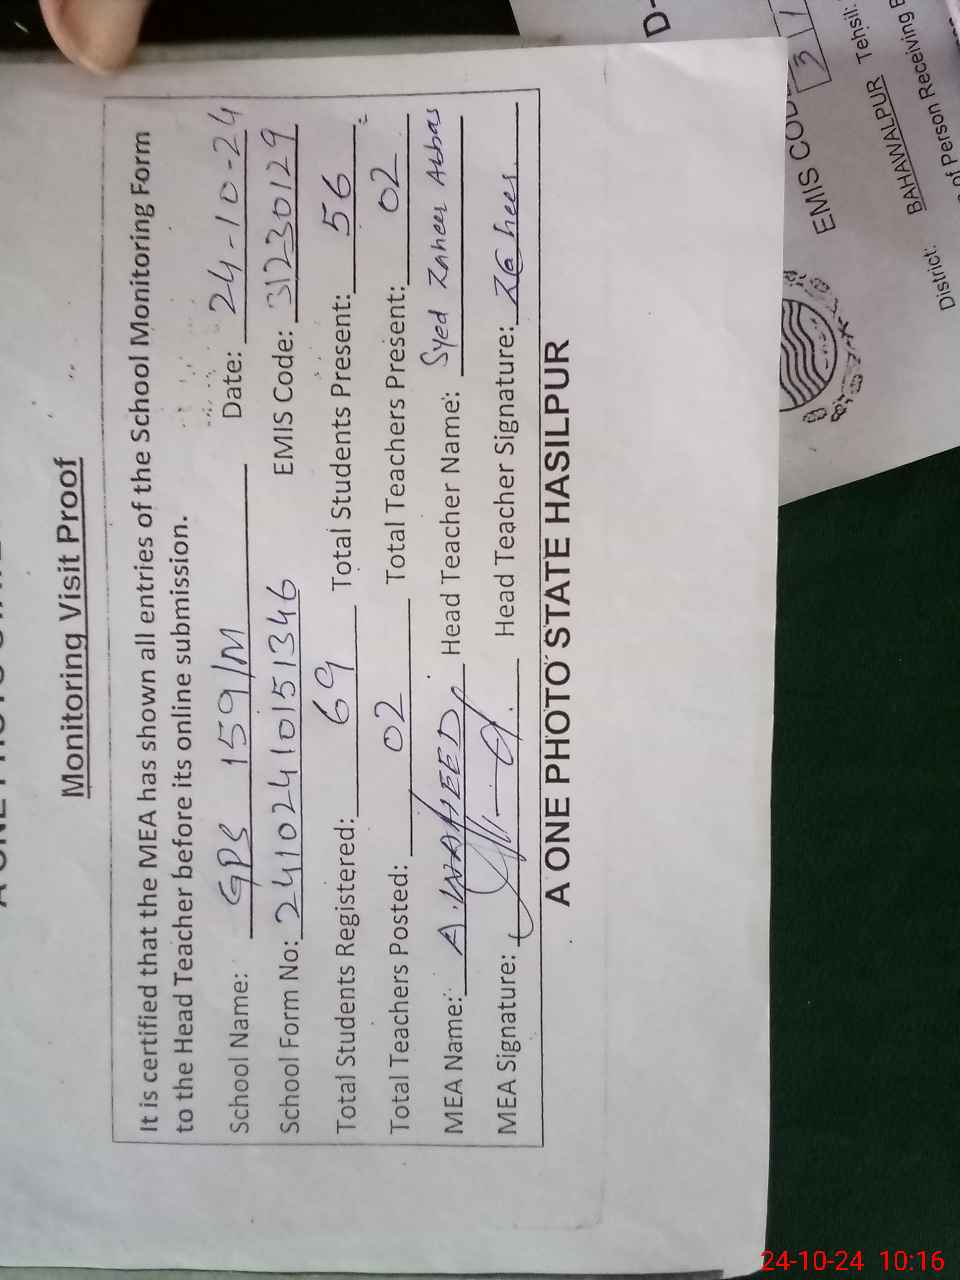 Monitoring Visit Proof
It is certified that the MEA has shown all entries of the School Monitoring Form
to the Head Teacher before its online submission.
School Name: GPS 159/M Date: 24-10-24
School Form No: 2410241015 1346 EMIS Code: 31230129
Total Students Registered: 69 Total Students Present: 56
Total Teachers Posted: 02 Total Teachers Present: 02
MEA Name: A.WAHEED Head Teacher Name: Syed Zaheer Abbas
MEA Signature: Head Teacher Signature: Zaheer
A ONE PHOTO STATE HASILPUR
D-
EMIS CODE 31
BAHAWALPUR Tehsil:
District: of Person Receiving
24-10-24 10:16